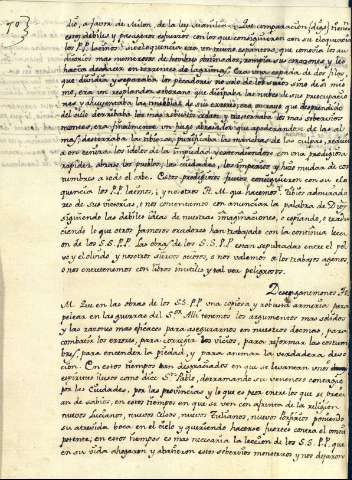 dio, a favor de Milon, de la ley Manilia &c. Que comparacion (dige) tienen
estos debiles y pasageros esfuerzos con los que consiguieron con su eloquencia
los PP. latinos? Su eloquencia era un trueno espantoso, que conmovia los au-
ditorios mas numerosos de hombres obstinados, rompia sus corazones y los
hacia deshacer en torrentes de lagrimas. Era una espada de dos filos,
que dividia y separaba los pecadores no solo de los suyos sino de si mis-
mos, era un resplandor soberano que disipaba las nubes de sus preocupacio-
nes y ahuyentaba las tinieblas de sus errores; era un rayo que desprendido
del cielo derribaba los mas robustos cedros y trastornaba los mas soberbios
montes; era finalmente un fuego abrasador que apoderandose de las al-
mas, desterraba la tibieza, purificaba las manchas de las culpas, reducia
a cenizas los idolos de la impiedad y extendiendose con una prodigiosa
rapidez abrasó los pueblos, las ciudades, los imperios y hizo mudar de cos-
tumbres a todo el orbe. Estos prodigiosos frutos consiguieron con su elo-
quencia los PP. latinos, y nosotros A. M. que hacemos? Vilos admirado-
res de sus victorias, nos contentamos con anunciar la palabra de Dios
siguiendo las debiles ideas de nuestras imaginaciones, o copiando, o tradu-
ciendo lo que otros famosos oradores han trabajado con la continua lecci-
on de los S.S. P.P. Las obras de los S.S. P.P. estan sepultadas entre el pol-
vo y el olvido y nosotros siervos ociosos, o nos valemos de los trabajos agenos,
o nos contentamos con libros inutiles y tal vez peligrosos.
Desengañemonos A.
M. Que en las obras de los S.S. P.P. una copiosa y robusta armeria para
pelear en las guerras del S.or Alli tenemos los argumentos mas solidos
y las razones mas eficaces para asegurarnos en nuestros dogmas, para
combatir los errores, para corregir los vicios, para reformar las costum-
bres, para encender la piedad, y para animar la verdadera devo-
cion. En estos tiempos tan desgraciados en que se levantan unos
espiritus ilusos como dice S.n Pablo, derramando su venenoso contagio
por las Ciudades, por las provincias y lo que es peor entre los que se preci-
an de sabios, en estos tiempos en que se ven con afrenta de la religion
nuevos Lucianos, nuevos Celsos, nuevos Julianos, nuevos Porfirios poniendo
su atrevida boca en el cielo y queriendo hacerse fuertes contra el omni-
potente; en estos tiempos es mas necesaria la leccion de los S.S. P.P. que
en su vida ahogaron y abatieron estos soberbios monstruos y nos dejaron